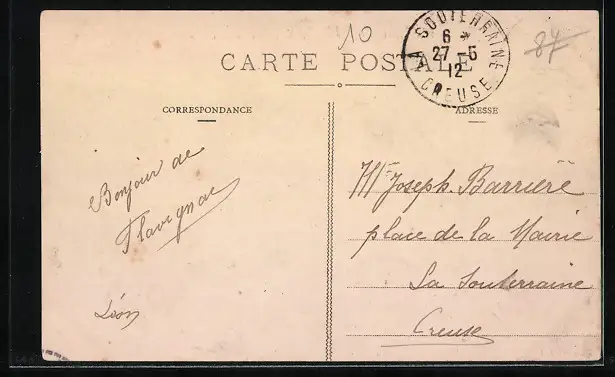 10
87
LA SOUTERRAINE
6 *
27 - 5
12
CREUSE
CARTE POSTALE
CORRESPONDANCE
ADRESSE
Bonjour de
Flavignac
Léon
Mr Joseph. Barrière
place de la Mairie
La Souterraine
Creuse